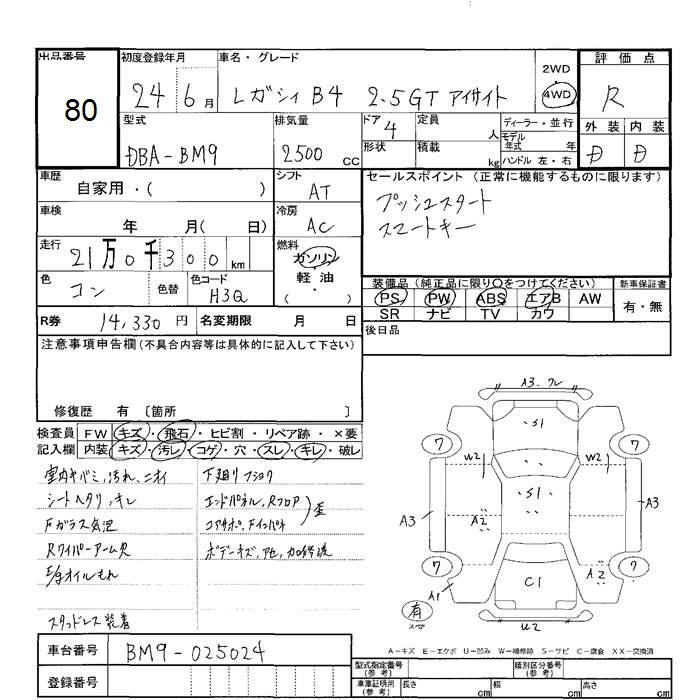 出品番号
80
初度登録年月
24 6 月
車名・グレード
レガシィ B4 2.5GT アイサイト
2WD
4WD
評価点
R
型式
DBA-BM9
排気量
2500 CC
ドア 4
形状
定員 人
積載 kg
ディーラー・並行
モデル年式 年
ハンドル 左・右
外装 内装
D D
車歴
自家用・( )
シフト
AT
セールスポイント (正常に機能するものに限ります)
プッシュスタート
スマートキー
車検
年 月( 日)
冷房
AC
走行
21万0千300 km
燃料
ガソリン
軽油
・
色
コン
色替
色コード
H3Q
装備品 (純正品に限り○をつけてください)
PS PW ABS エアB AW
SR ナビ TV カワ
新車保証書
有・無
R券 14,330 円
名変期限 月 日
後日品
注意事項申告欄 (不具合内容等は具体的に記入して下さい)
修復歴 有 〔箇所 〕
検査員 FW キズ・飛石・ヒビ割・リペア跡・×要
記入欄 内装 キズ・汚レ・コゲ・穴・スレ・キレ・破レ
室内キバミ,汚れ,ニオイ
シートヘタリ,キレ
Fガラス気泡
Rワイパーアーム
オイルもれ
スタッドレス装着
下廻りフショク
エンドパネル,Rフロア
コアサポ,Fインパネ
歪
ボデーキズ,凹,加修波
A3.ワレ
S1
7 7
W2 W2
S1
A3 A3
A2
7 7
A2
C1
A1
有
スペア
U2
A-キズ E-エクボ U-凹み W-補修跡 S-サビ C-腐食 XX-交換済
車台番号 BM9-025024
登録番号
型式指定番号 (参考)
類別区分番号 (参考)
車庫証明用 (参考) 長さ cm 幅 cm 高さ cm